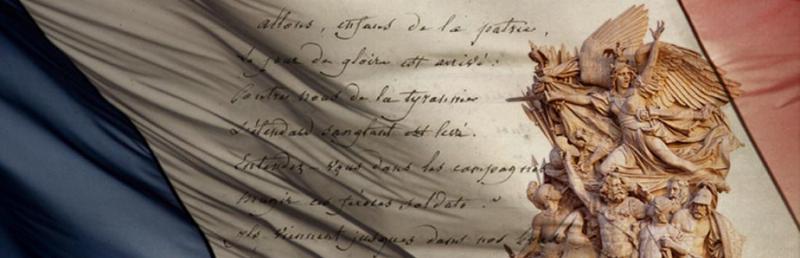 allons, enfans de la patrie,
Le jour de gloire est arrivé:
Contre nous de la tyrannie
L'étendard sanglant est levé.
Entendez-vous dans les campagnes
mugir ces féroces soldats?
ils viennent jusques dans nos